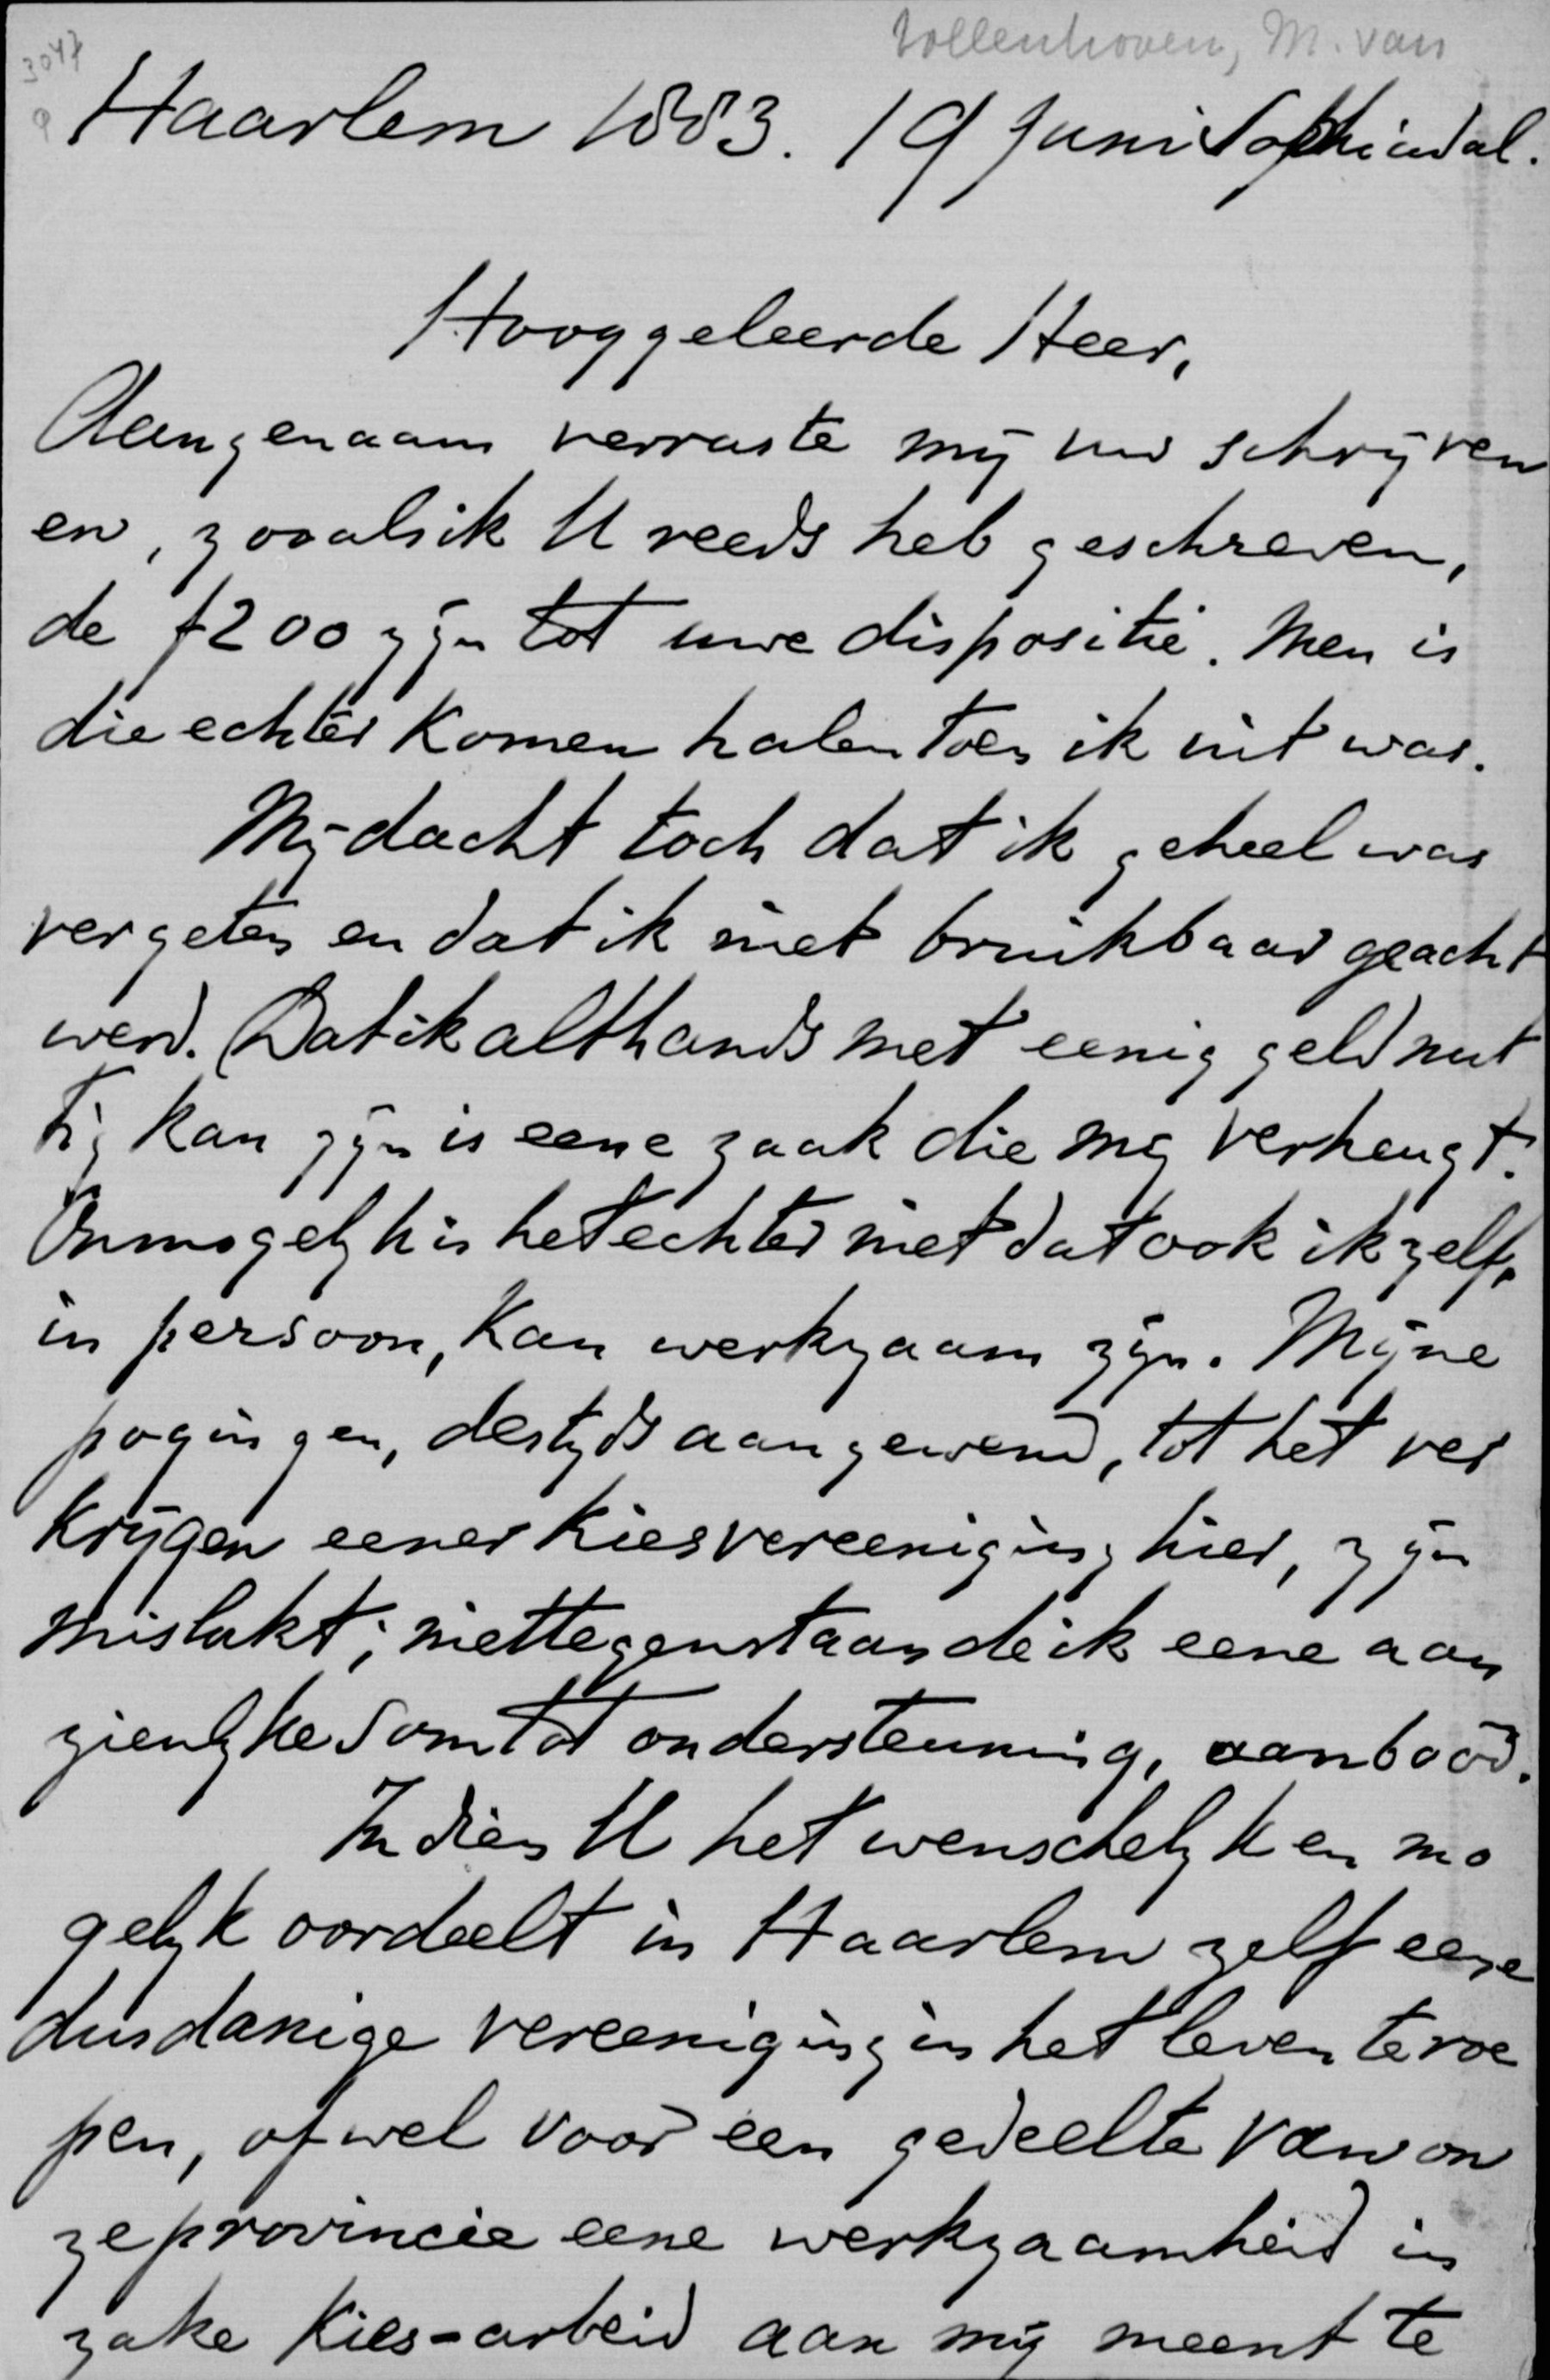 Vollenhoven, M. van
3047
9
Haarlem 1883. 19 Juni Sophiadal.
Hooggeleerde Heer,
Aengenaam verraste mÿ uw schrÿven
en, zooals ik U reeds heb geschreven,
de f200 zÿn tot uwe dispositie. Men is
die echter komen halen toen ik uit was.
Mÿ dacht toch dat ik geheel was
vergeten en dat ik niet bruikbaar geacht
werd. Dat ik althands met eenig geld nut
tig kan zÿn is eene zaak die mÿ verheugt.
Onmogelÿk is het echter niet dat ook ik zelf,
in persoon, kan werkzaam zÿn. Mÿne
pogingen, destÿds aangewend, tot het ver
krÿgen eener kiesvereeniging hier, zÿn
mislukt; niettegenstaande ik eene aan
zienlÿke som tot ondersteuning, aanbood.
Indien U het wenschelÿk en mo
gelÿk oordeelt in Haarlem zelf eene
dusdanige vereeniging in het leven te roe
pen, ofwel voor een gedeelte van on
ze provincie eene werkzaamheid in
zake Kies-arbeid aan mÿ meent te